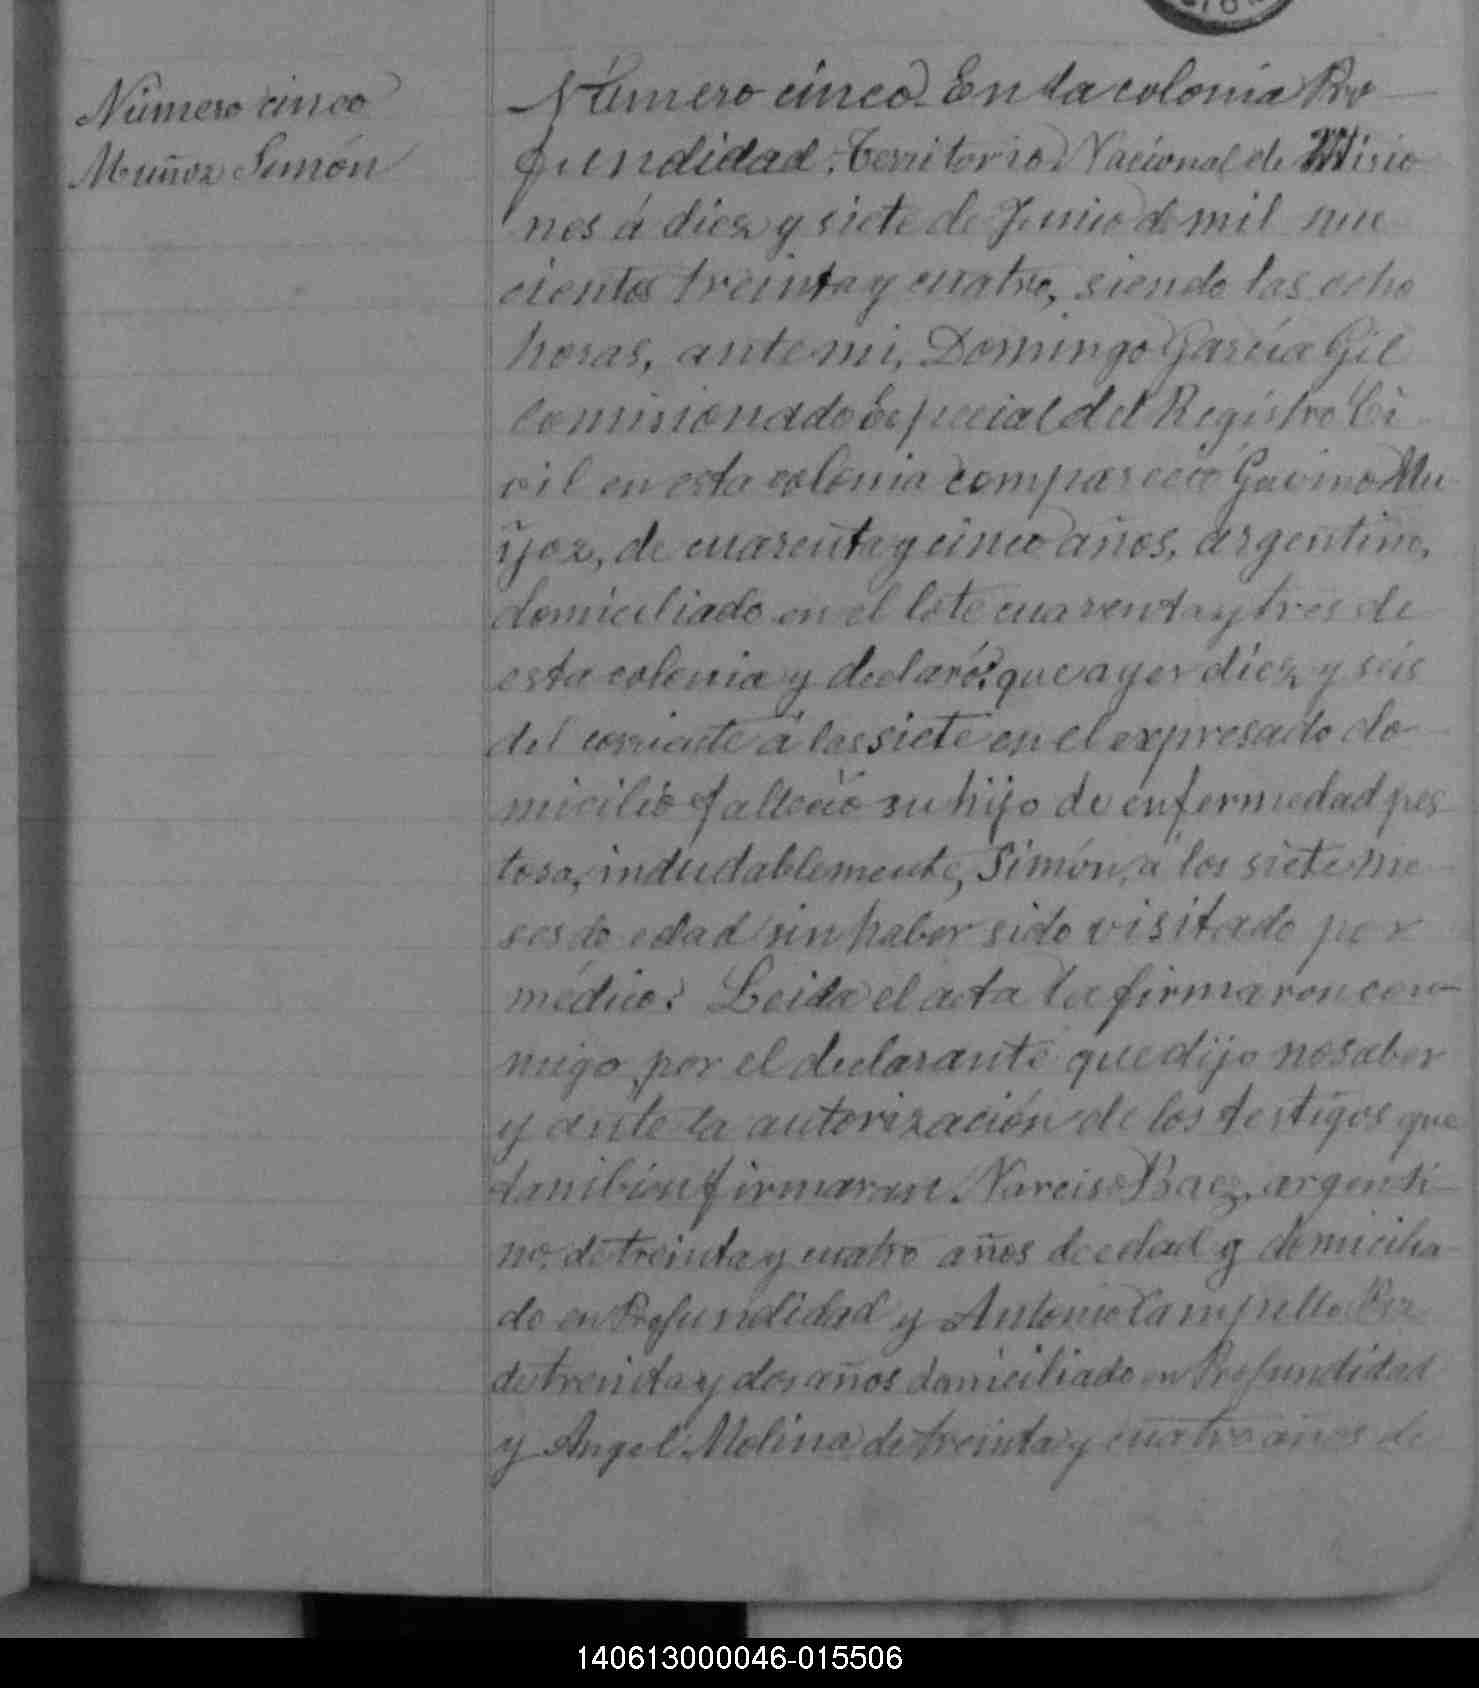 Número cinco
Muñoz Simón
Número cinco. En la colonia Pro
fundidad, Territorio Nacional de Misio
nes á diez y siete de Junio de mil nue
cientos treinta y cuatro, siendo las ocho
horas, ante mi, Domingo García Gil
Comisionado Especial del Registro Ci
vil en esta colonia compareció Gavino Mu
ñoz, de cuarenta y cinco años, argentino,
domiciliado en el lote cuarenta y tres de
esta colonia y declaró: que ayer diez y seis
del corriente á las siete en el expresado do
micilio falleció su hijo de enfermedad pes
tosa, indudablemente, Simón, a los siete me
ses de edad sin haber sido visitado por
médico: Leida el acta la firmaron con-
migo por el declarante que dijo no saber
y ante la autorización de los testigos que
tambien firmaran Narciso Baez, argenti
no, de treinta y cuatro años de edad y domicilia
do en Profundidad y Antonio Campello
de treinta y dos años domiciliado en Profundidad
y Angel Molina de treinta y cuatro años de
140613000046-015506